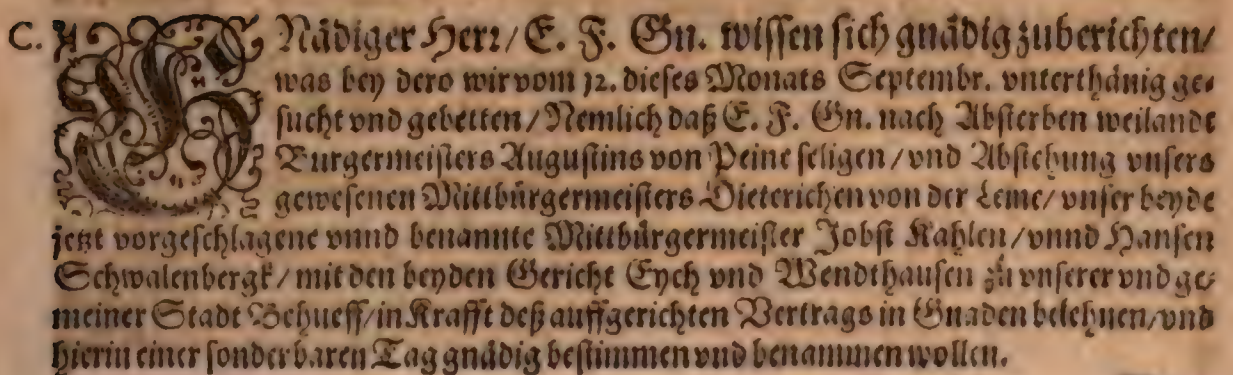 C. GNädiger Herr/ E. F. Gn. wissen sich gnädig zuberichten/
was bey dero wir vom 12. dieses Monats Septembr. vnterthänig ge-
sucht vnd gebetten/ Nemlich daß E. F. Gn. nach Absterben weilandt
Burgermeisters Augustins von Peine seligen/ vnd Abstehung vnsers
gewesenen Mittbürgermeisters Dieterichen von der Leme/ vnser beyde
jetzt vorgeschlagene vnnd benannte Mittbürgermeister Jobst Kahlen/ vnnd Hansen
Schwalenbergk/ mit den beyden Gericht Eych vnd Wendthausen zu vnserer vnd ge-
meiner Stadt Behueff/ in Krafft deß auffgerichten Vertrags in Gnaden belehnen/ vnd
hierin einer sonderbaren Tag gnädig bestimmen vnd benammen wollen.